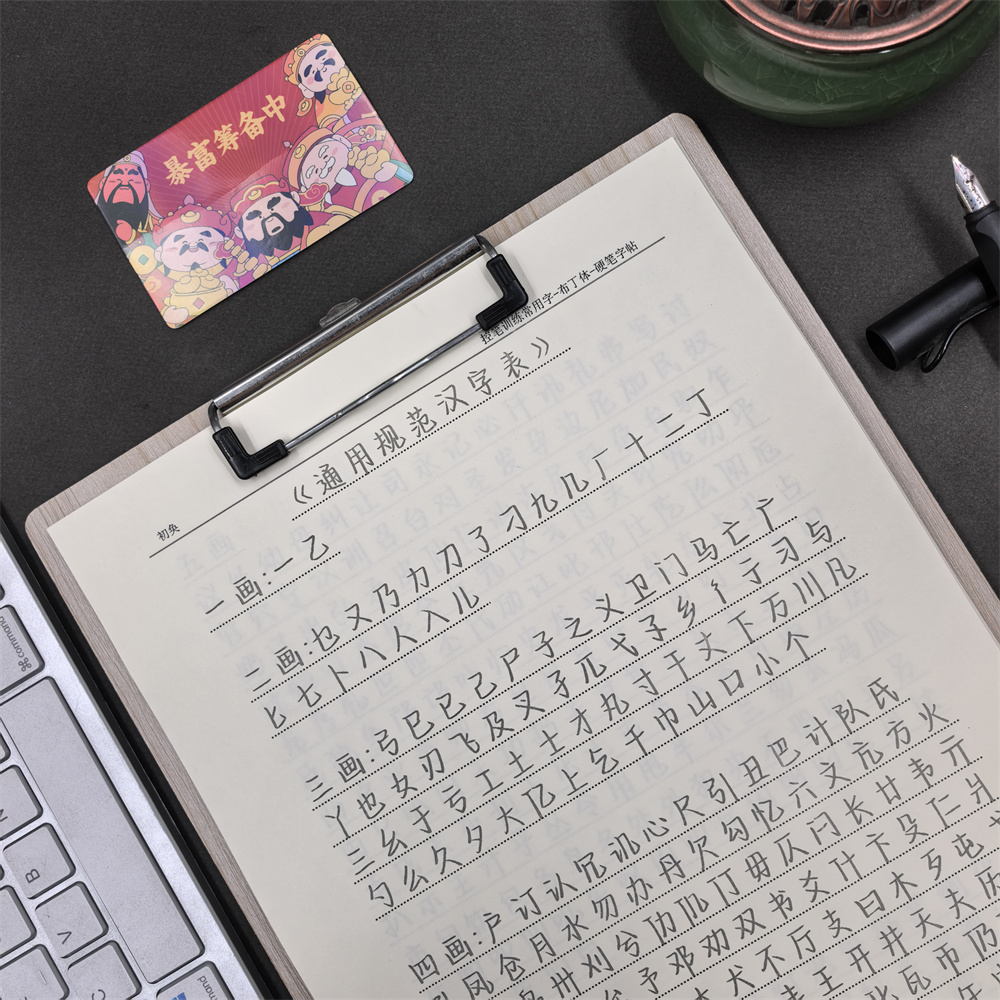 暴富筹备中
控笔训练常用字-布丁体-硬笔字帖
初奂
《通用规范汉字表》
一画:一乙
二画:乜又乃力刀了刁九几厂十二丁
匕七卜八人入儿
三画:弓巳已己尸子之义卫门马亡广
丫也女刃飞及叉孑兀弋孓乡彳亍习与
三幺于亏工土士才丸寸干丈下万川凡
勺么久夕大亿上乞千巾山口小个
四画:户订认冗讥心尺引丑巴计队氏
凤仓月水勿办丹欠勾忆六文亢方火
卅刈兮功仉冇毋仄闩长廿韦亓
予邓劝双书爻卞殳仁爿
犬不厅支曰木歹屯
王开井天夫历
瓦币仍
command
B
V
N
command